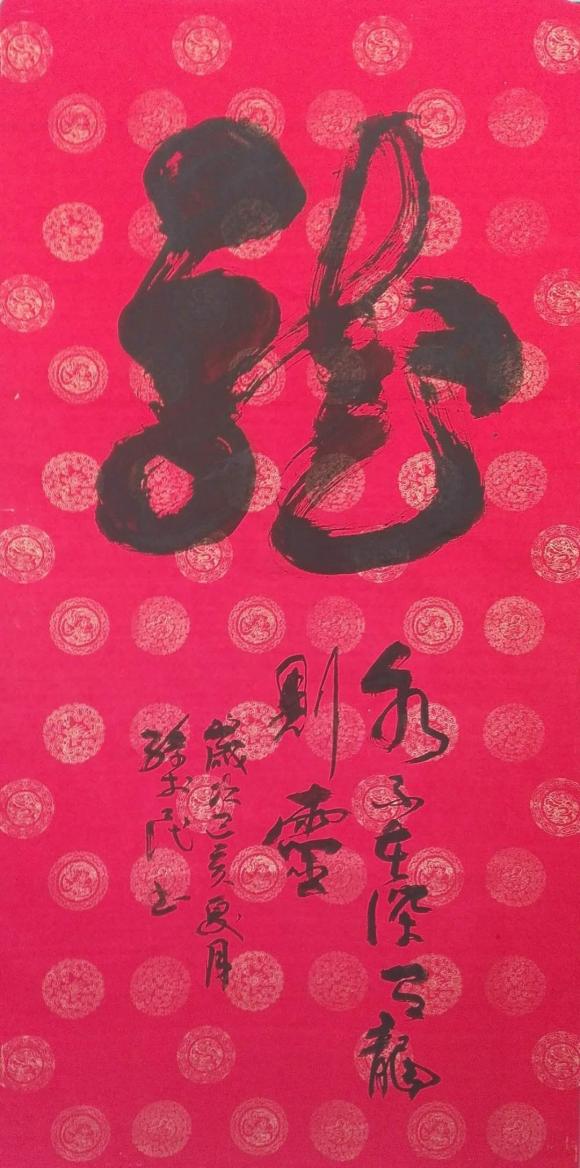 龍
水不在深有龍
則靈
歲次己亥夏月
孫民书